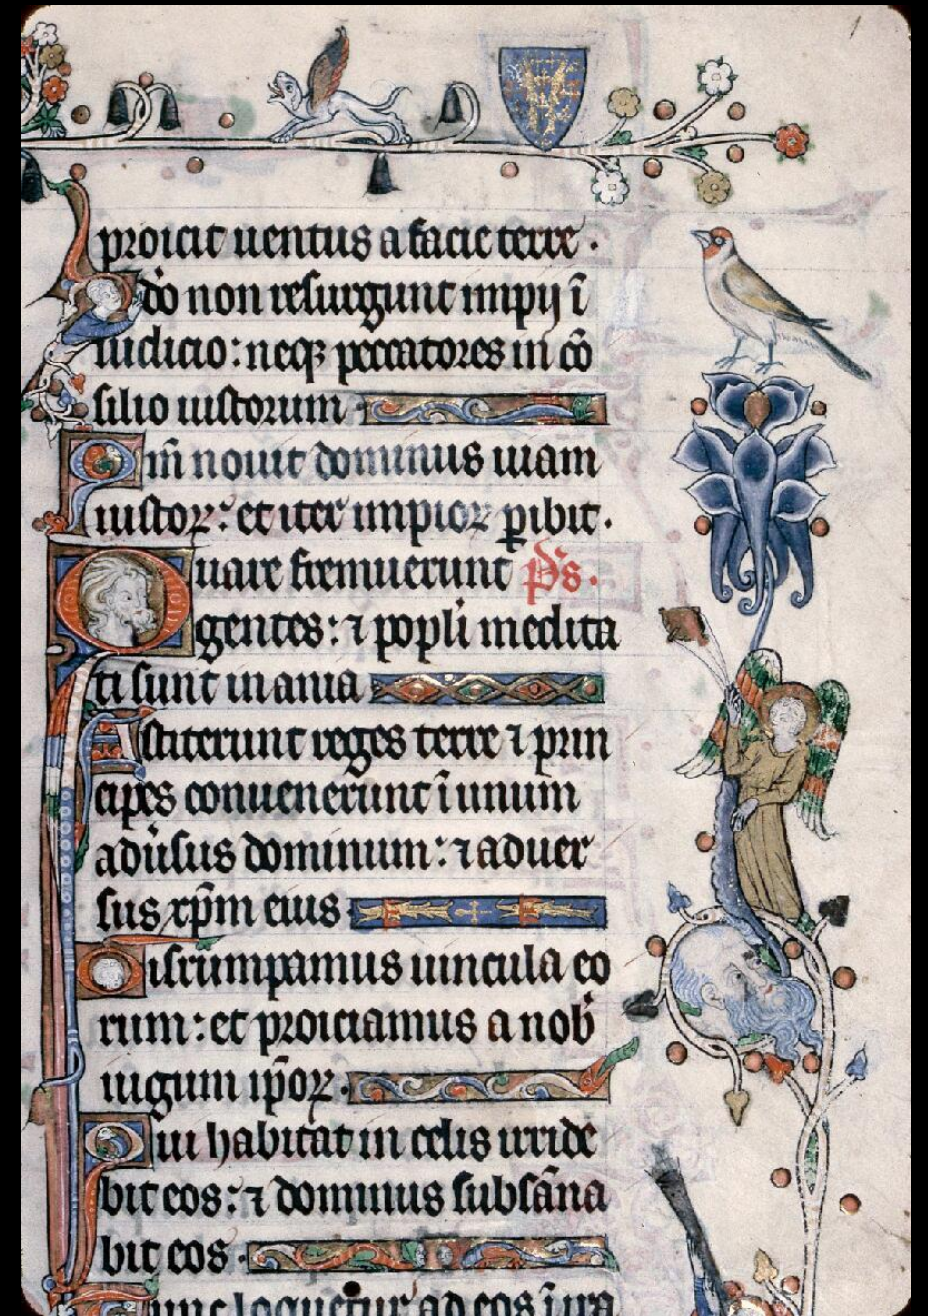 proicit uentus a facie terre ·
Ido non resurgunt impij ī
iudicio : neqꝫ peccatores in cō
silio iustorum
Qm̄ nouit dominus uiam
iustoꝝ : et iter impioꝝ ꝑibit ·
Quare fremuerunt p̄s ·
gentes : ⁊ popli medita
ti sunt inania
Astiterunt reges terre ⁊ prin
cipes conuenerunt ī unum
adusus dominum : ⁊ aduer
sus xp̄m eius
Disrumpamus uincula eo
rum : et proiciamus a nob
iugum ip̄oꝝ ·
Qui habitat in celis irride
bit eos : ⁊ dominus subsāna
bit eos ·
Tunc loquetur ad eos ī ira